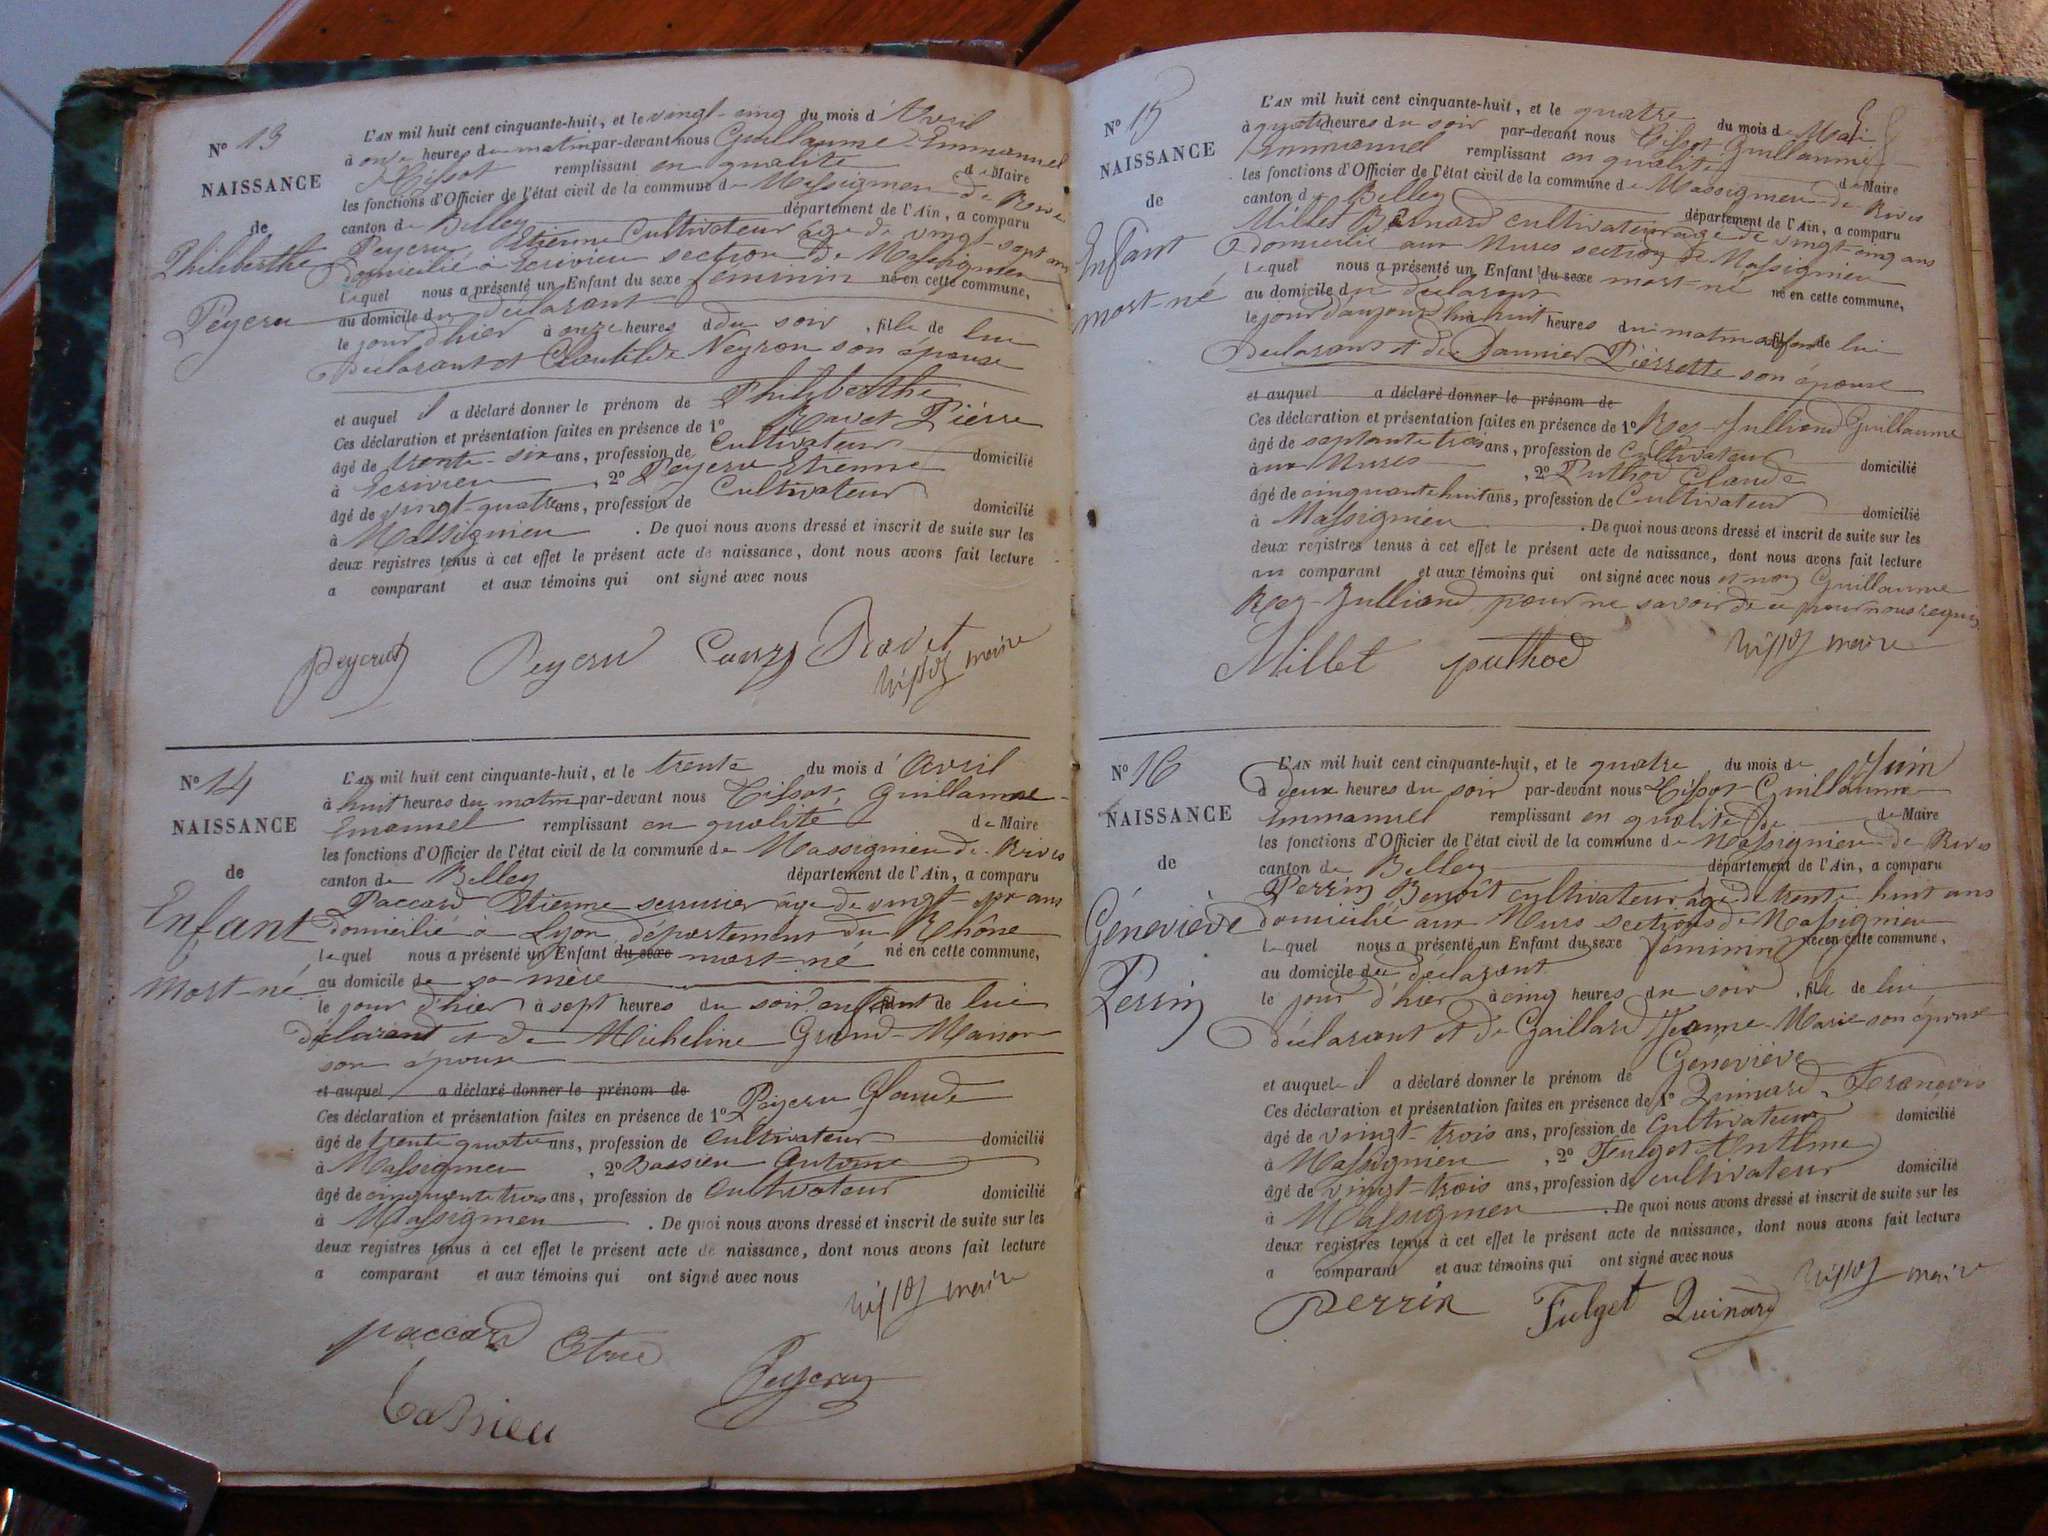 N° 13
NAISSANCE
de
Philiberthe
Peyeru
L'AN mil huit cent cinquante-huit, et le vingt-cinq du mois d'Avril
à onze heures du matin par-devant nous Guillaume Emmanuel
Tissot remplissant en qualité de Maire
les fonctions d'Officier de l'état civil de la commune de Massignieu de Rives
canton de Belley département de l'Ain, a comparu
Peyeru Etienne Cultivateur âgé de vingt-sept ans
domicilié à Ecrivieu section de Massignieu
lequel nous a présenté un Enfant du sexe féminin né en cette commune,
au domicile du déclarant
le jour d'hier à onze heures du soir, fille de lui
déclarant et Clautilde Neyron son épouse
et auquel il a déclaré donner le prénom de Philiberthe
Ces déclaration et présentation faites en présence de 1° Ravet Pierre
âgé de trente-six ans, profession de Cultivateur domicilié
à Ecrivieu, 2° Peyeru Etienne
âgé de vingt-quatre ans, profession de Cultivateur domicilié
à Massignieu. De quoi nous avons dressé et inscrit de suite sur les
deux registres tenus à cet effet le présent acte de naissance, dont nous avons fait lecture
a comparant et aux témoins qui ont signé avec nous
Peyeru Peyeru Ravet
Tissot maire
N° 14
NAISSANCE
de
Enfant
mort-né
L'AN mil huit cent cinquante-huit, et le trente du mois d'Avril
à huit heures du matin par-devant nous Tissot, Guillaume
Emanuel remplissant en qualité de Maire
les fonctions d'Officier de l'état civil de la commune de Massignieu de Rives
canton de Belley département de l'Ain, a comparu
Paccard Etienne serrurier âgé de vingt- ans
domicilié à Lyon département du Rhône
lequel nous a présenté un Enfant du sexe mort-né né en cette commune,
au domicile de sa mère
le jour d'hier à sept heures du soir enfant de lui
déclarant et de Micheline Grand-Maison
son épouse
et auquel a déclaré donner le prénom de
Ces déclaration et présentation faites en présence de 1° Peyeru Claude
âgé de trente quatre ans, profession de Cultivateur domicilié
à Massignieu, 2° Bassieu Antoine
âgé de cinquante trois ans, profession de Cultivateur domicilié
à Massignieu. De quoi nous avons dressé et inscrit de suite sur les
deux registres tenus à cet effet le présent acte de naissance, dont nous avons fait lecture
a comparant et aux témoins qui ont signé avec nous
Tissot maire
Paccard Peyeru
Bassieu
N° 15
NAISSANCE
de
Enfant
mort-né
L'AN mil huit cent cinquante-huit, et le quatre du mois de Mai
à quatre heures du soir par-devant nous Tissot Guillaume
Emmanuel remplissant en qualité de Maire
les fonctions d'Officier de l'état civil de la commune de Massignieu de Rives
canton de Belley département de l'Ain, a comparu
Millet Bernard cultivateur âgé de vingt-cinq ans
domicilié aux Mures section de Massignieu
lequel nous a présenté un Enfant du sexe mort-né né en cette commune,
au domicile du déclarant
le jour d'aujourd'hui à huit heures du matin enfant de lui
déclarant et de Pierrette son épouse
et auquel a déclaré donner le prénom de
Ces déclaration et présentation faites en présence de 1° Rey-Julliand Guillaume
âgé de septante trois ans, profession de Cultivateur domicilié
à aux Mures, 2° Puthod Claude
âgé de cinquante huit ans, profession de Cultivateur domicilié
à Massignieu. De quoi nous avons dressé et inscrit de suite sur les
deux registres tenus à cet effet le présent acte de naissance, dont nous avons fait lecture
au comparant et aux témoins qui ont signé avec nous et non Guillaume
Rey-Julliand pour ne savoir de ce par nous requis
Millet puthod Tissot maire
N° 16
NAISSANCE
de
Géneviève
Perrin
L'AN mil huit cent cinquante-huit, et le quatre du mois de Juin
à deux heures du soir par-devant nous Tissot Guillaume
Emmanuel remplissant en qualité de Maire
les fonctions d'Officier de l'état civil de la commune de Massignieu de Rives
canton de Belley département de l'Ain, a comparu
Perrin Benoît cultivateur âgé de trente huit ans
domicilié aux Murs sections de Massignieu
lequel nous a présenté un Enfant du sexe féminin né en cette commune,
au domicile du déclarant
le jour d'hier à cinq heures du soir, fille de lui
déclarant et de Gaillard Jeanne-Marie son épouse
et auquel il a déclaré donner le prénom de Geneviève
Ces déclaration et présentation faites en présence de 1° Quinard François
âgé de vingt-trois ans, profession de Cultivateur domicilié
à Massignieu, 2° Fulget Anthme
âgé de vingt-trois ans, profession de cultivateur domicilié
à Massignieu. De quoi nous avons dressé et inscrit de suite sur les
deux registres tenus à cet effet le présent acte de naissance, dont nous avons fait lecture
a comparant et aux témoins qui ont signé avec nous
Tissot maire
Perrin Fulget Quinard